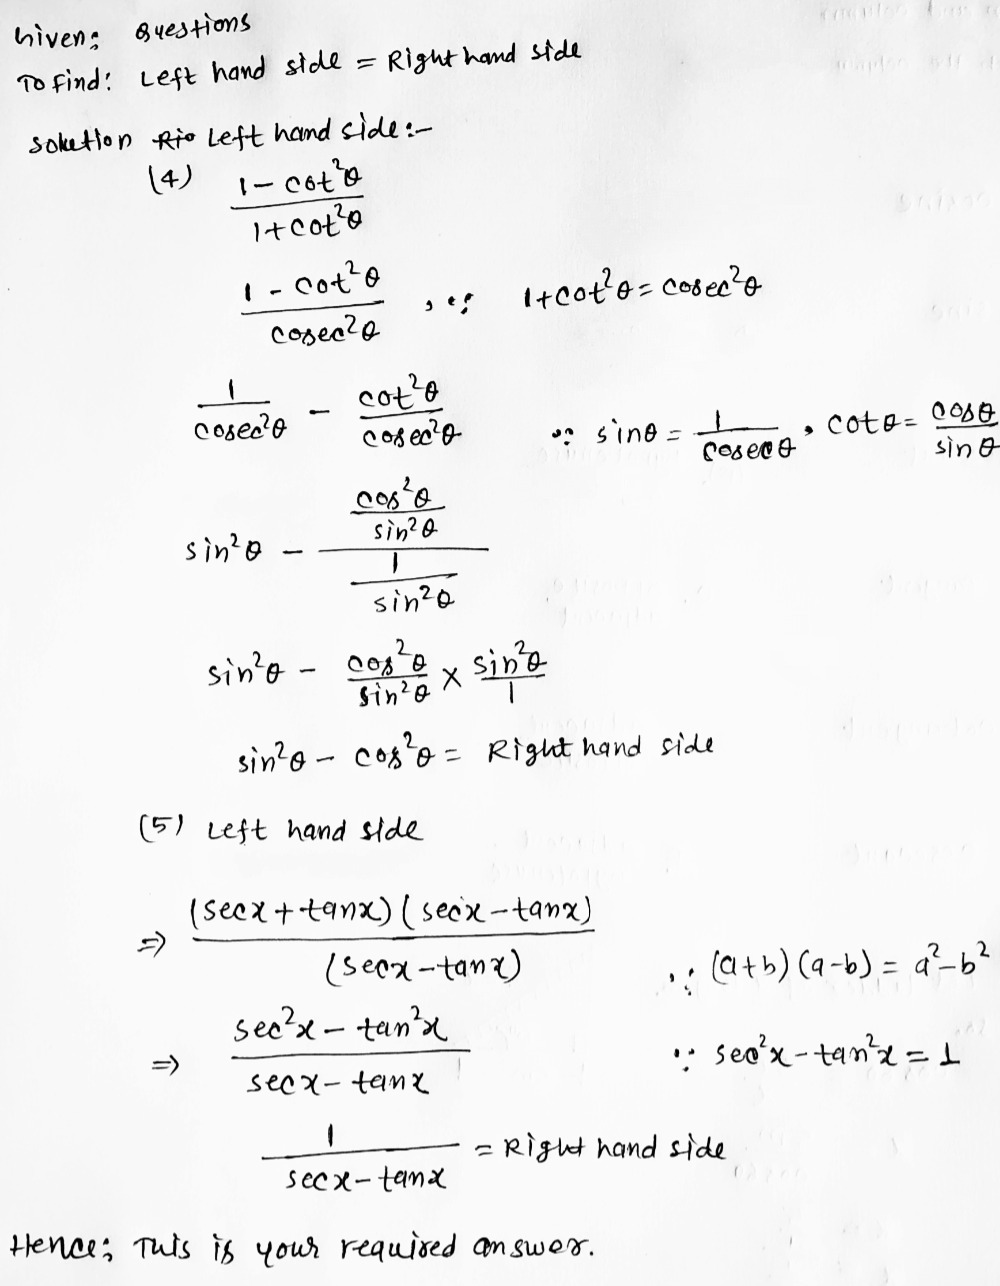 Given: Questions
To Find: Left hand side = Right hand side
Solution Left hand side:-
(4) (1 - cot²θ)/(1 + cot²θ)
(1 - cot²θ)/(cosec²θ) , ∵ 1+cot²θ = cosec²θ
1/(cosec²θ) - (cot²θ)/(cosec²θ) ∵ sinθ = 1/(cosecθ) , cotθ = cosθ/sinθ
sin²θ - (cos²θ/sin²θ)/(1/sin²θ)
sin²θ - cos²θ/sin²θ × sin²θ/1
sin²θ - cos²θ = Right hand side
(5) Left hand side
⇒ (secx + tanx)(secx - tanx)/(secx - tanx) ∵ (a+b)(a-b) = a²-b²
⇒ (sec²x - tan²x)/(secx - tanx) ∵ sec²x - tan²x = 1
1/(secx - tanx) = Right hand side
Hence; This is your required answer.